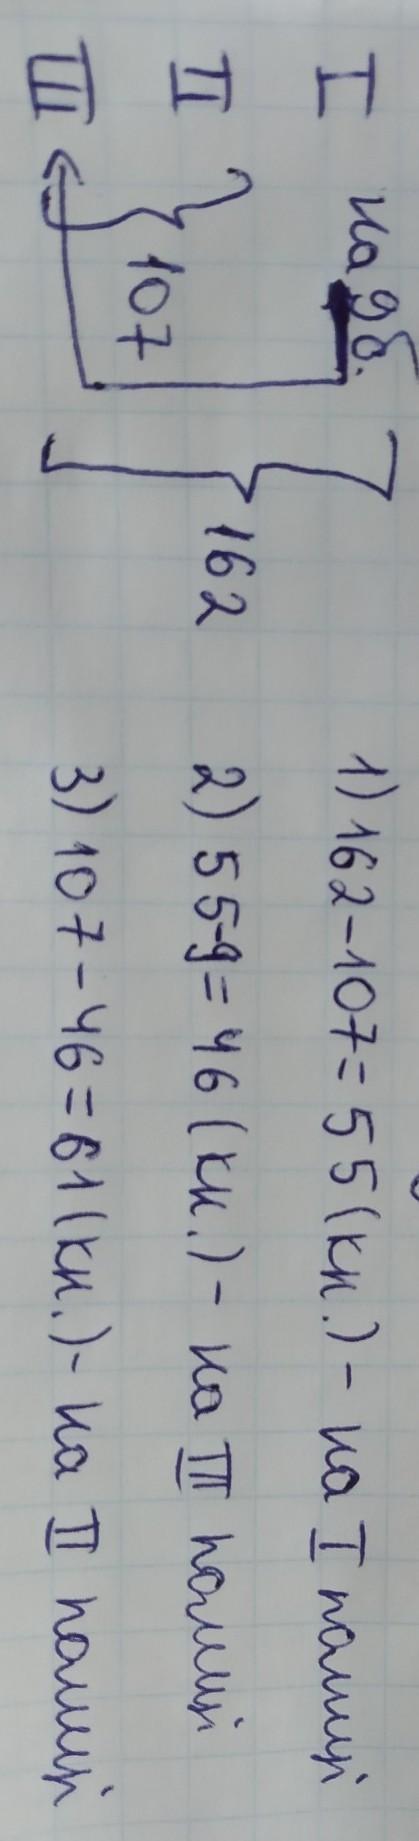 I на 9 б.
II
III
107
162
1) 162-107=55(кн.)- на I полиці
2) 55-9=46(кн.)- на III полиці
3) 107-46=61(кн.)- на II полиці